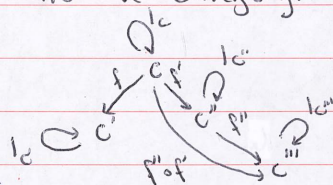 1c
c
f
f'
1c''
c'
c''
f''
1c'''
1c'
f'' o f'
c'''